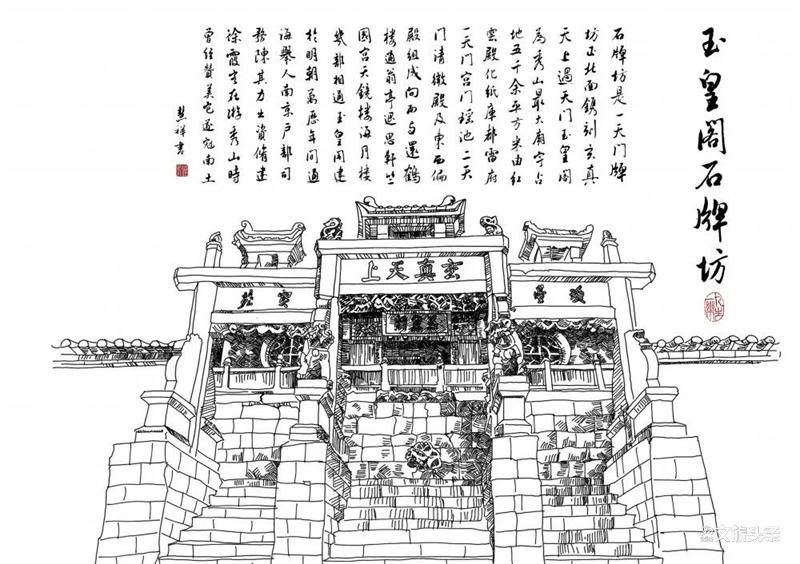 玉皇閣石牌坊
石牌坊是一天门牌
坊正北面鎸刻玄真
天上過天门玉皇阁
為秀山最大廟宇占
地五千余平方米由红
雲殿化纸库都雷府
一天门宫门瑶池二天
门清微殿及東西偏
殿组成向西与還鶴
楼通翁亭思軒竺
國宫天镜楼海月楼
部相通玉皇阁建
於明朝萬歷年间通
海舉人南京户部司
務陳其力出资修建
徐霞客在游秀山時
曾经贊美它遂冠南土
慧祥書
玄真天上
文旅头条